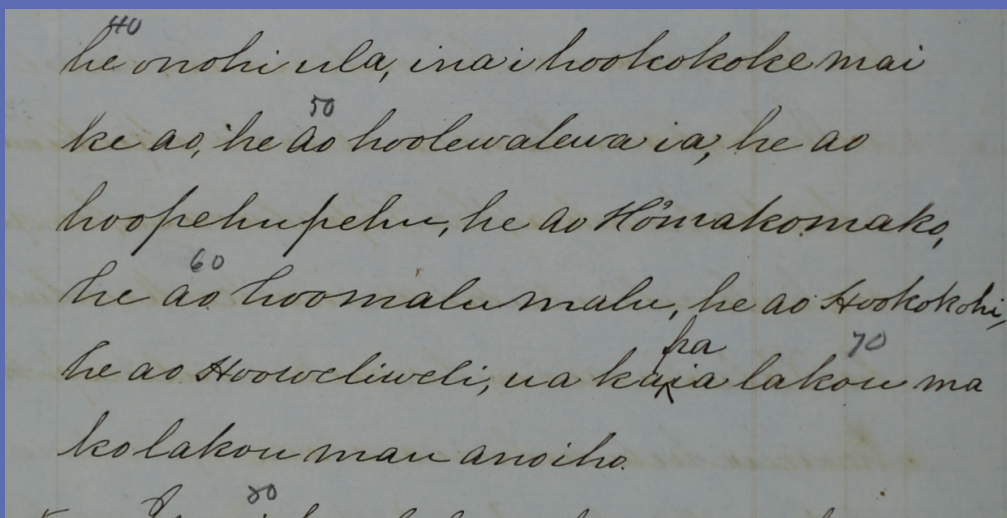 40
he onohi ula, ina i hookokoke mai
50
ke ao, he ao hoolewalewa ia, he ao
hoopehupehu, he ao Homakomako,
60
he ao hoomalumalu, he ao Hookokohi,
pa 70
he ao Hooweliweli, ua kaia lakou ma
ko lakou mau anoiho.
80